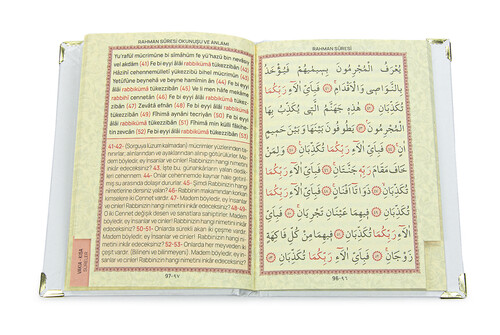 RAHMAN SÛRESİ OKUNUŞU VE ANLAMI
Yu'rafül mücrimûne bi sîmâhüm fe yü'hazü bin nevâsî
vel akdâm (41) Fe bi eyyi âlâi rabbikümâ tükezzibân (42)
Hâzihî cehennemülletî yükezzibü bihel mücrimûn (43)
Yetûfûne beynehâ ve beyne hamîmin ân (44) Fe bi eyyi
âlâi rabbikümâ tükezzibân (45) Ve li men hâfe mekâme
rabbihî cennetân (46) Fe bi eyyi âlâi rabbikümâ
tükezzibân (47) Zevâtâ efnân (48) Fe bi eyyi âlâi rabbikümâ
tükezzibân (49) Fîhimâ aynâni tecriyân (50) Fe bi eyyi
âlâi rabbikümâ tükezzibân (51) Fîhimâ min külli fâkihe-
tin zevcân (52) Fe bi eyyi âlâi rabbikümâ tükezzibân (53)
41-42- (Sorguya lüzum kalmadan) mücrimler yüzlerinden ta-
nınırlar, alınlarından ve ayaklarından alınıp götürülürler. Ma-
dem böyledir, ey insanlar ve cinler! Rabbinizin hangi nimetini
inkâr edeceksiniz? 43. İşte bu, günahkârların yalan dedik-
leri cehennem. 44- Onlar cehennemde kaynar hale getiril-
miş su arasında dolaşır dururlar. 45- Şimdi Rabbinizin hangi
nimetlerine dersiniz yalan? 46- Rabbinin makamından korkan
kimselere iki Cennet vardır. 47- Madem böyledir, ey insanlar
ve cinler! Rabbinizin hangi nimetini inkâr edeceksiniz? 48-49-
O iki Cennet değişik desen ve sanatlara sahiptirler. Madem
böyledir, ey insanlar ve cinler! Rabbinizin hangi nimetini inkâr
edeceksiniz? 50-51- Onlarda sürekli akan iki çeşme vardır.
Madem böyledir, ey insanlar ve cinler! Rabbinizin hangi ni-
metini inkâr edeceksiniz? 52-53- Onlarda her meyveden iki
çeşit vardır. (Bilinen ve bilinmeyen). Madem böyledir, ey in-
sanlar ve cinler! Rabbinizin hangi nimetini inkâr edeceksiniz?
97-٩٧
RAHMAN SÛRESİ
يُعْرَفُ الْمُجْرِمُونَ بِسِيمٰيهُمْ فَيُؤْخَذُ
بِالنَّوَاصِى وَالْاَقْدَامِۚ ﴿٤١﴾ فَبِاَىِّ اٰلَٓاءِ رَبِّكُمَا
تُكَذِّبَانِ ﴿٤٢﴾ هٰذِهِ جَهَنَّمُ الَّتِى يُكَذِّبُ بِهَا
الْمُجْرِمُونَۘ ﴿٤٣﴾ يَطُوفُونَ بَيْنَهَا وَبَيْنَ حَمِيمٍ
اٰنٍۚ ﴿٤٤﴾ فَبِاَىِّ اٰلَٓاءِ رَبِّكُمَا تُكَذِّبَانِ ﴿٤٥﴾ وَلِمَنْ
خَافَ مَقَامَ رَبِّهِ جَنَّتَانِۚ ﴿٤٦﴾ فَبِاَىِّ اٰلَٓاءِ رَبِّكُمَا
تُكَذِّبَانِۙ ﴿٤٧﴾ ذَوَاتَٓا اَفْنَانٍۚ ﴿٤٨﴾ فَبِاَىِّ اٰلَٓاءِ رَبِّكُمَا
تُكَذِّبَانِ ﴿٤٩﴾ فِيهِمَا عَيْنَانِ تَجْرِيَانِۚ ﴿٥٠﴾ فَبِاَىِّ
اٰلَٓاءِ رَبِّكُمَا تُكَذِّبَانِ ﴿٥١﴾ فِيهِمَا مِنْ كُلِّ فَاكِهَةٍ
زَوْجَانِۚ ﴿٥٢﴾ فَبِاَىِّ اٰلَٓاءِ رَبِّكُمَا تُكَذِّبَانِ ﴿٥٣﴾
96-٩٦